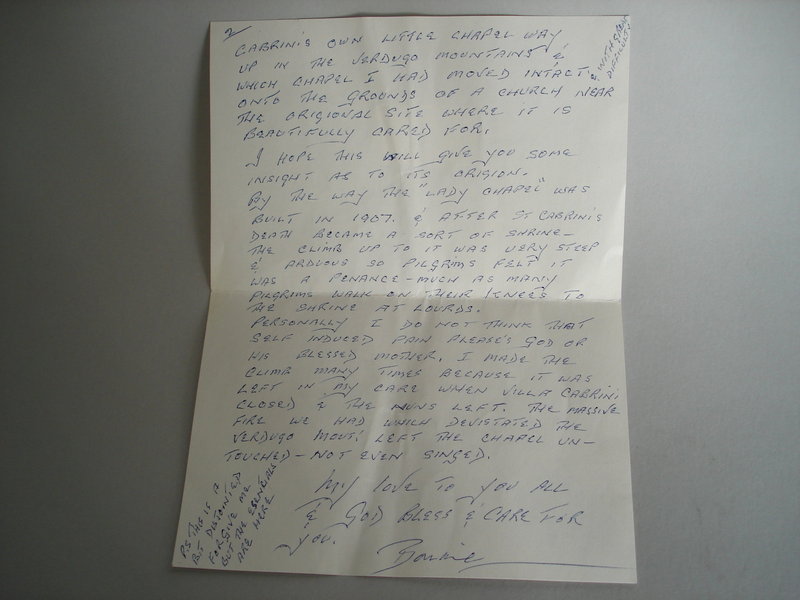 2
CABRINI'S OWN LITTLE CHAPEL WAY
UP IN THE VERDUGO MOUNTAINS &
WHICH CHAPEL I HAD MOVED INTACT &
WITH GREAT
DIFFICULTY
ONTO THE GROUNDS OF A CHURCH NEAR
THE ORIGIONAL SITE WHERE IT IS
BEAUTIFULLY CARED FOR.
I HOPE THIS WILL GIVE YOU SOME
INSIGHT AS TO ITS ORIGION.
BY THE WAY THE "LADY CHAPEL" WAS
BUILT IN 1907. & AFTER ST CABRINI'S
DEATH BECAME A SORT OF SHRINE—
THE CLIMB UP TO IT WAS VERY STEEP
& ARDUOUS SO PILGRIMS FELT IT
WAS A PENANCE—MUCH AS MANY
PILGRIMS WALK ON THEIR KNEES TO
THE SHRINE AT LOURDS.
PERSONALLY I DO NOT THINK THAT
SELF INDUCED PAIN PLEASE'S GOD OR
HIS BLESSED MOTHER. I MADE THE
CLIMB MANY TIMES BECAUSE IT WAS
LEFT IN MY CARE WHEN VILLA CABRINI
CLOSED & THE NUNS LEFT. THE MASSIVE
FIRE WE HAD WHICH DEVISTATED THE
VERDUGO MOUT! LEFT THE CHAPEL UN-
TOUCHED—NOT EVEN SINGED.
MY LOVE TO YOU ALL
& GOD BLESS & CARE FOR
YOU.
Bonnie
PS THIS IS A
BIT DISJOINTED
FORGIVE ME
BUT THE ESSENTIALS
ARE HERE